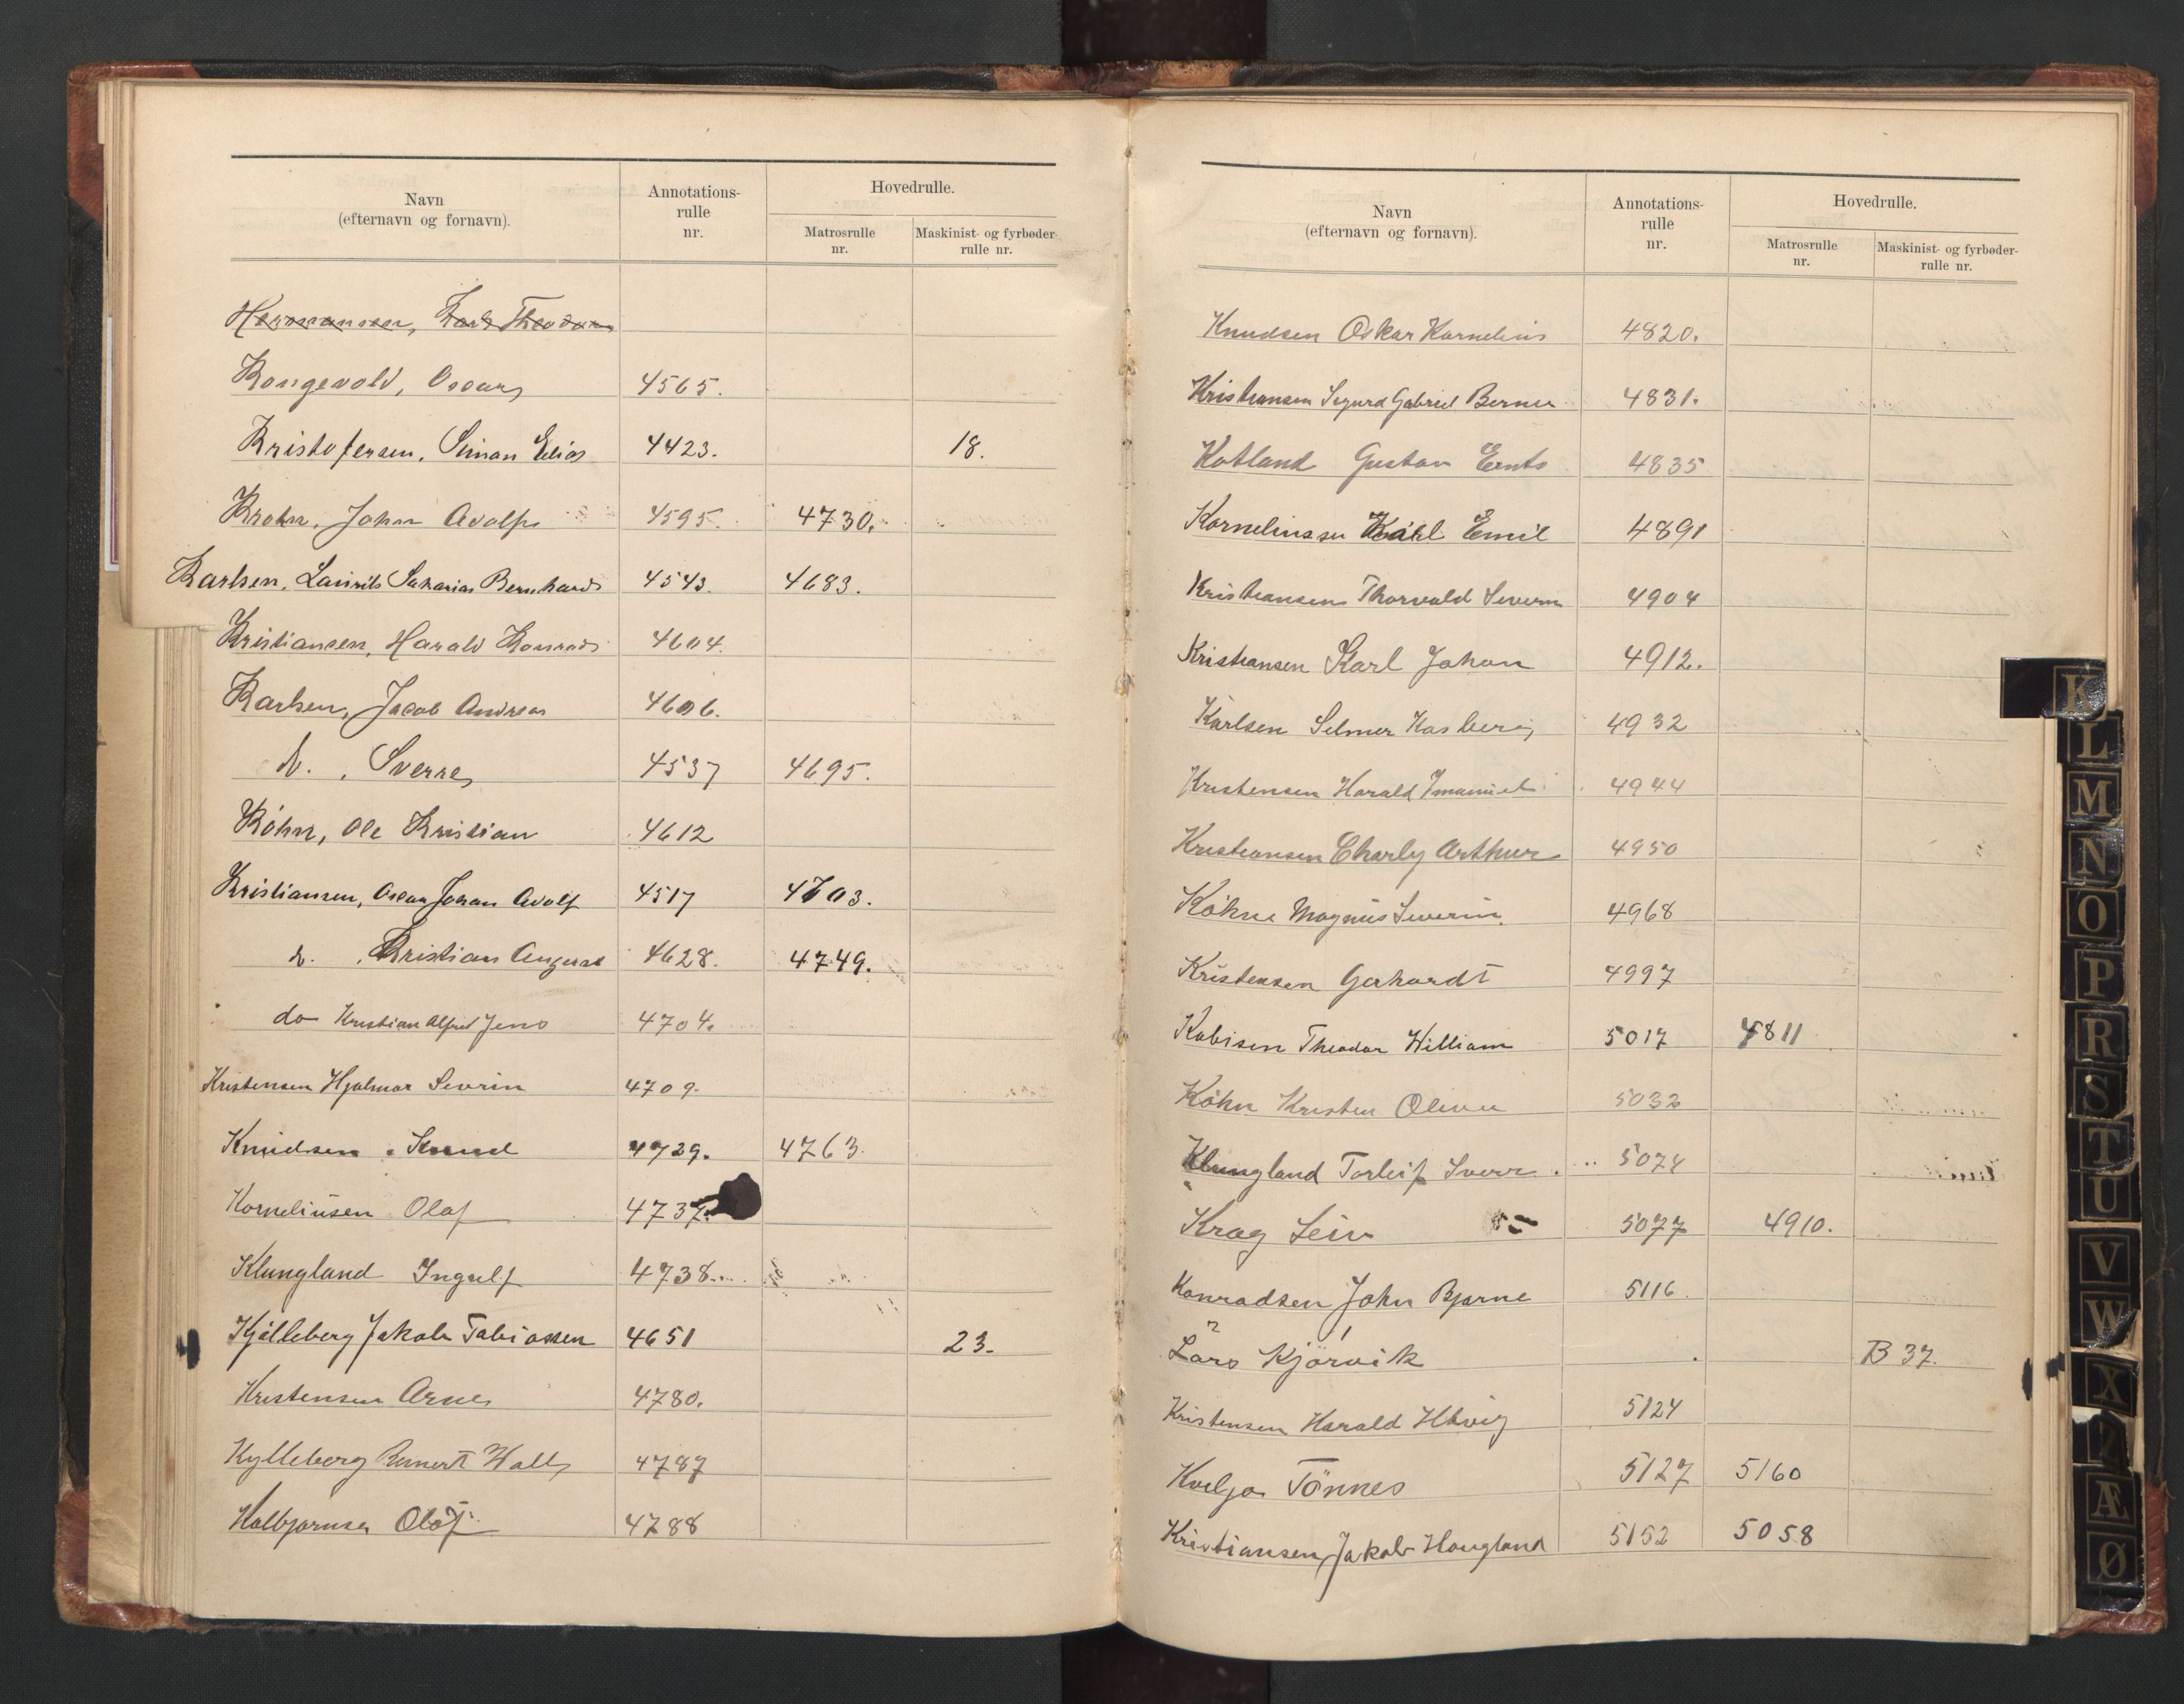 Navn
(efternavn og fornavn).
Annotations-
rulle
nr.
Hovedrulle.
Matrosrulle
nr.
Maskinist- og fyrbøder-
rulle nr.
Hermansen, Karl Theodor
Kongevold, Oscar 4565.
Kristofersen, Simon Elias 4423. 18.
Krohn, Johan Adolf 4595. 4730.
Karlsen, Laurits Sakarias Bernhard 4543. 4683.
Kristiansen, Harald Konrad 4604.
Karlsen, Jacob Andreas 4606.
d. , Sverre 4537 4695.
Köhn, Ole Kristian 4612
Kristiansen, Oscar Johan Adolf 4517 4703.
d. , Kristian August 4628. 4749.
do Kristian Alfred Jens 4704.
Kristensen Hjalmar Sevrin 4709.
Knudsen, Knud 4729. 4763.
Korneliusen Olaf 4737.
Klungland Ingulf 4738.
Kjälleberg Jakob Tobiassen 4651 23.
Kristensen Arne 4780.
Kylleberg Wally 4787
Kolbjornsen Olaf 4788
Navn
(efternavn og fornavn).
Annotations-
rulle
nr.
Hovedrulle.
Matrosrulle
nr.
Maskinist- og fyrbøder-
rulle nr.
Knudsen Oskar Kornelius 4820.
Kristiansen Sigurd Gabriel Berner 4831.
Kotland Gustav 4835
Korneliussen Karl Emil 4891
Kristiansen Thorvald Severin 4904
Kristiansen Karl Johan 4912.
Karlsen Selmer Kasberg 4932
Kristensen Harald Imanuel 4944
Kristiansen Charly Arthur 4950
Köhne Magnus Severin 4968
Kristensen Gerhardt 4997
Kobisen Theodor William 5017 4811
Köhn Kristen Oliver 5032
Klungland Torleif Sverr 5074
Krag Leiv 5077 4910.
Konradsen John Bjarne 5116
2 1
Lars Kjörvik B 37.
Kristensen Harald 5124
Kvelja Tönnes 5127 5160
Kristiansen, Jakob Haugland 5152 5058
K
L
M
N
O
P
R
S
T
U
V
W
X
Z
Æ
Ø